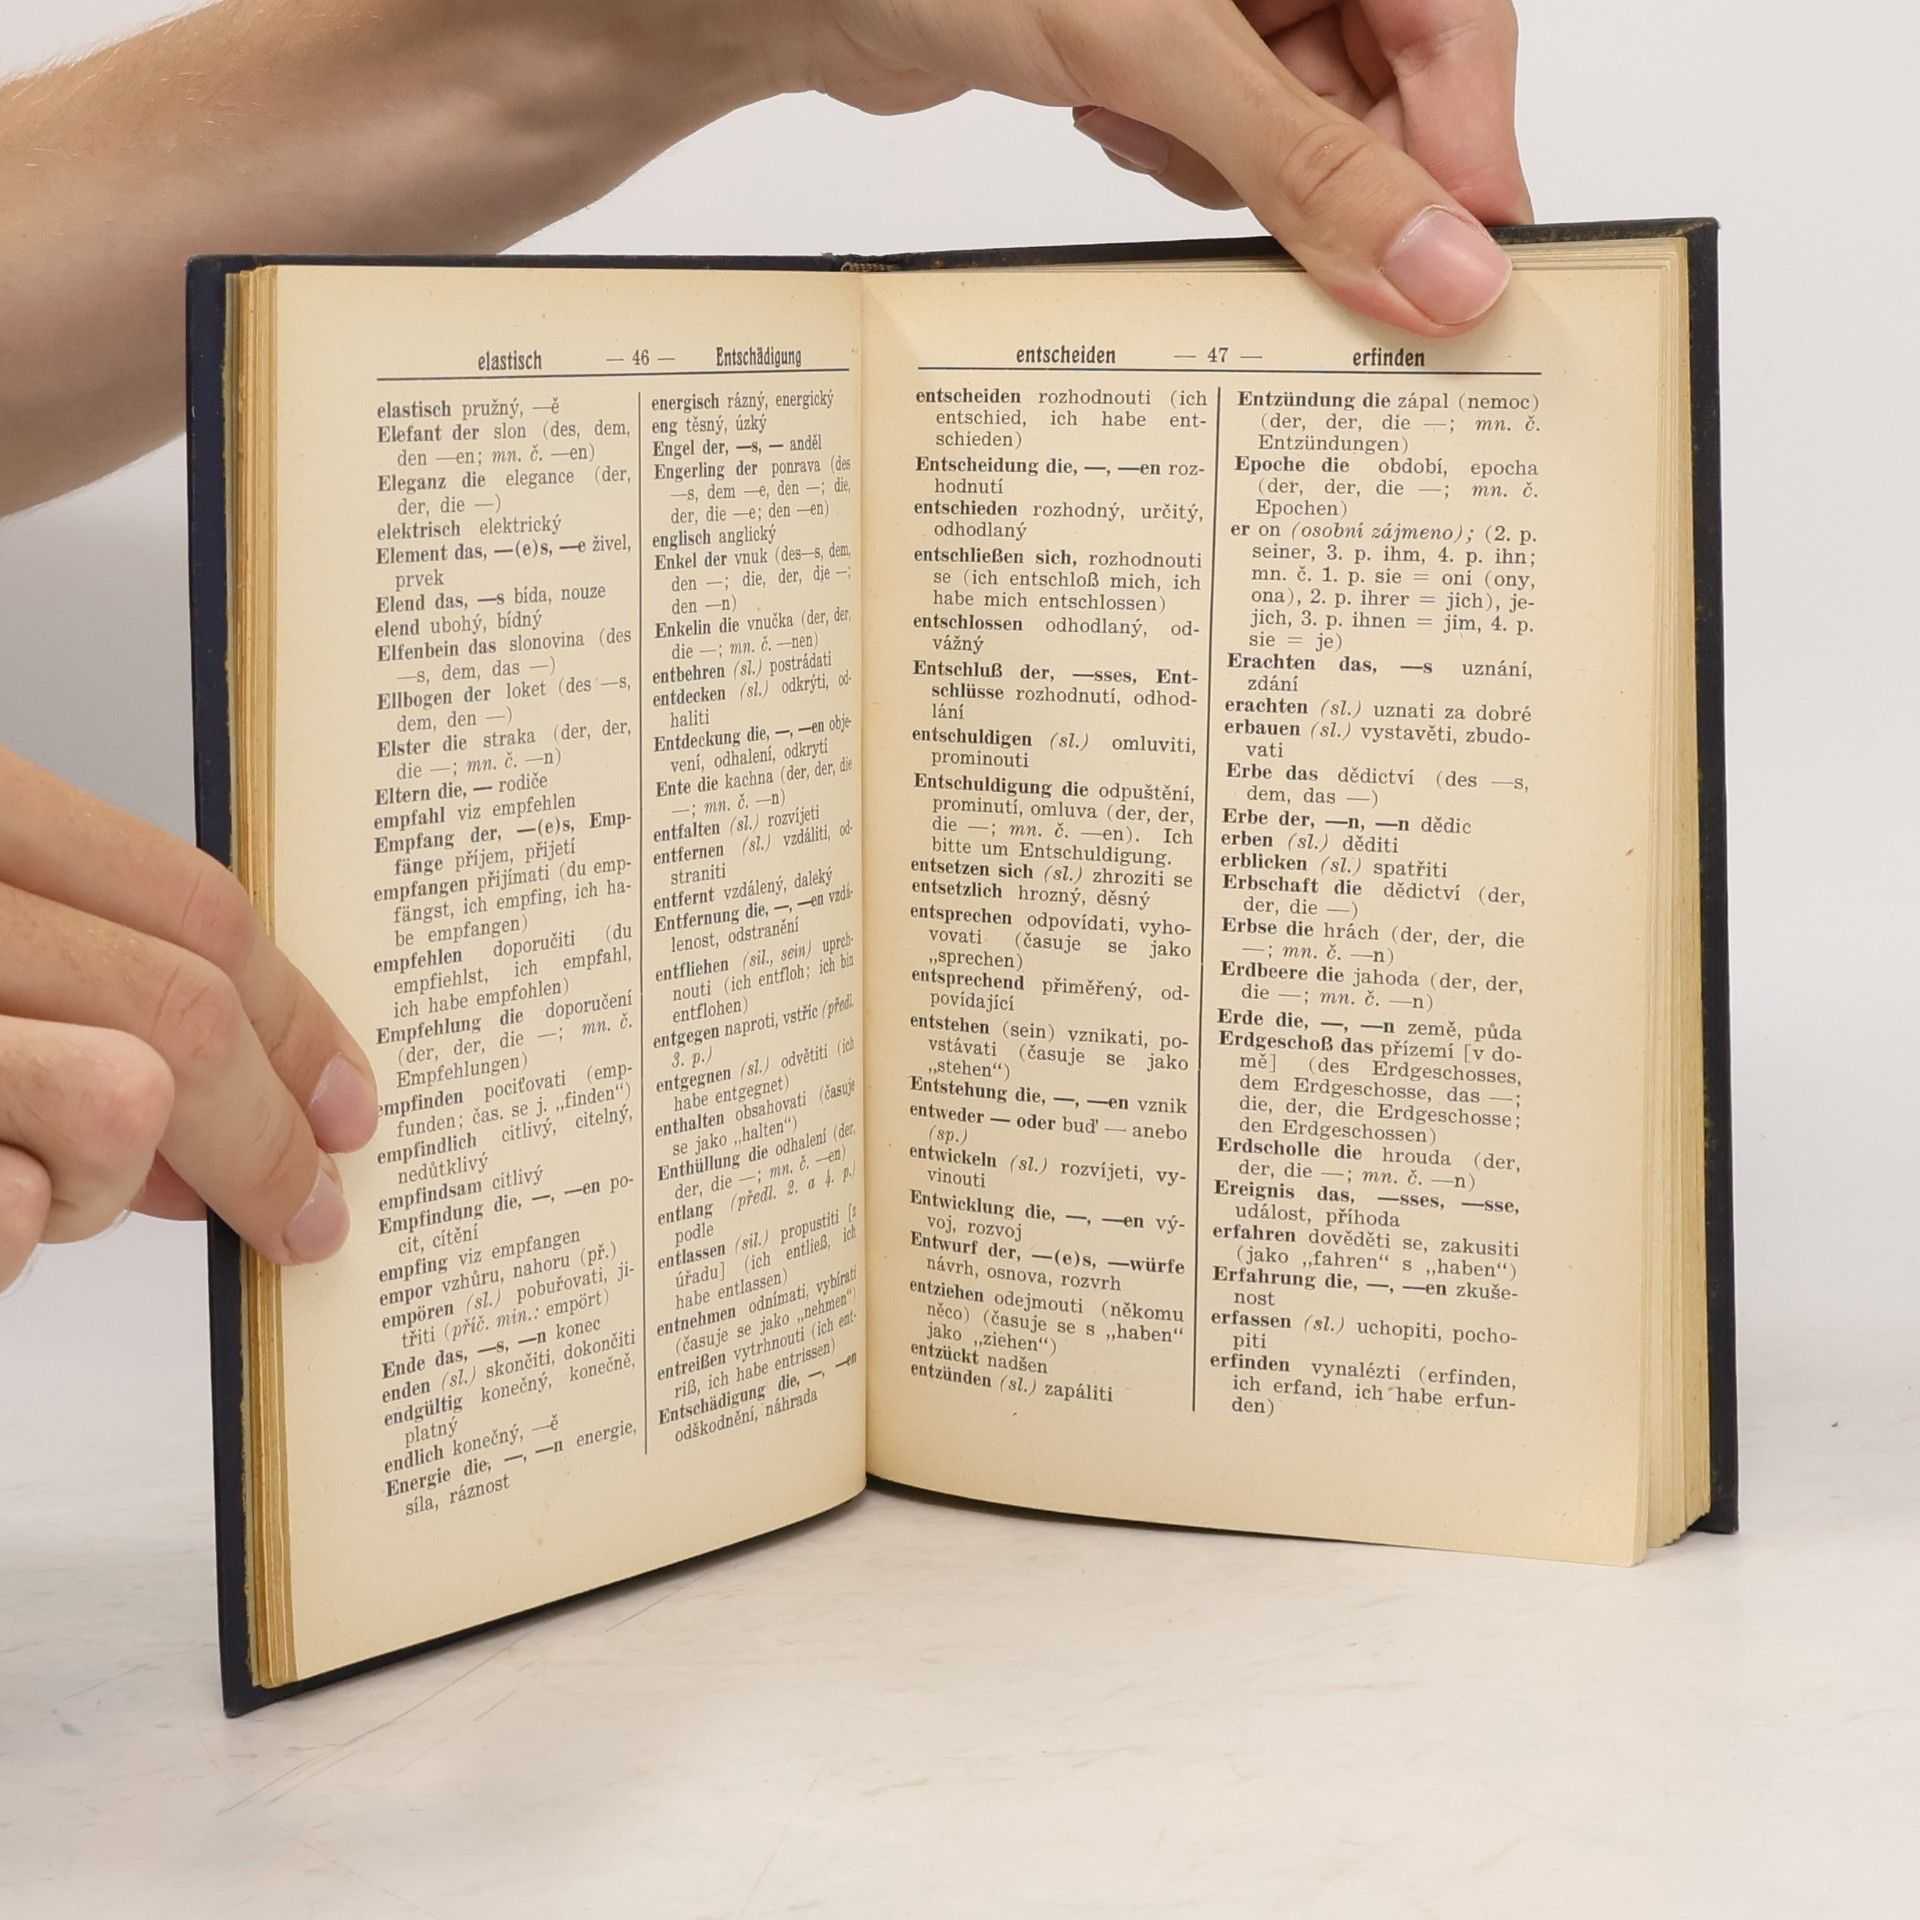 elastisch — 46 — Entschädigung
elastisch pružný, —ě
Elefant der slon (des, dem,
den —en; mn. č. —en)
Eleganz die elegance (der,
der, die —)
elektrisch elektrický
Element das, —(e)s, —e živel,
prvek
Elend das, —s bída, nouze
elend ubohý, bídný
Elfenbein das slonovina (des
—s, dem, das —)
Ellbogen der loket (des —s,
dem, den —)
Elster die straka (der, der,
die —; mn. č. —n)
Eltern die, — rodiče
empfahl viz empfehlen
Empfang der, —(e)s, Emp-
fänge příjem, přijetí
empfangen přijímati (du emp-
fängst, ich empfing, ich ha-
be empfangen)
empfehlen doporučiti (du
empfiehlst, ich empfahl,
ich habe empfohlen)
Empfehlung die doporučení
(der, der, die —; mn. č.
Empfehlungen)
empfinden pociťovati (emp-
funden; čas. se j. „finden“)
empfindlich citlivý, citelný,
nedůtklivý
empfindsam citlivý
Empfindung die, —, —en po-
cit, cítění
empfing viz empfangen
empor vzhůru, nahoru (př.)
empören (sl.) pobuřovati, ji-
třiti (příč. min.: empört)
Ende das, —s, —n konec
enden (sl.) skončiti, dokončiti
endgültig konečný, konečně,
platný
endlich konečný, —ě
Energie die, —, —n energie,
síla, ráznost
energisch rázný, energický
eng těsný, úzký
Engel der, —s, — anděl
Engerling der ponrava (des
—s, dem —e, den —; die,
der, die —e; den —en)
englisch anglický
Enkel der vnuk (des—s, dem,
den —; die, der, die —;
den —n)
Enkelin die vnučka (der, der,
die —; mn. č. —nen)
entbehren (sl.) postrádati
entdecken (sl.) odkrýti, od-
haliti
Entdeckung die, —, —en obje-
vení, odhalení, odkrytí
Ente die kachna (der, der, die
—; mn. č. —n)
entfalten (sl.) rozvíjeti
entfernen (sl.) vzdáliti, od-
straniti
entfernt vzdálený, daleký
Entfernung die, —, —en vzdá-
lenost, odstranění
entfliehen (sil., sein) uprch-
nouti (ich entfloh; ich bin
entflohen)
entgegen naproti, vstříc (předl.
3. p.)
entgegnen (sl.) odvětiti (ich
habe entgegnet)
enthalten obsahovati (časuje
se jako „halten“)
Enthüllung die odhalení (der,
der, die —; mn. č. —en)
entlang (předl. 2. a 4. p.)
podle
entlassen (sil.) propustiti [z
úřadu] (ich entließ, ich
habe entlassen)
entnehmen odnímati, vybírati
(časuje se jako „nehmen“)
entreißen vytrhnouti (ich ent-
riß, ich habe entrissen)
Entschädigung die, —, —en
odškodnění, náhrada
entscheiden — 47 — erfinden
entscheiden rozhodnouti (ich
entschied, ich habe ent-
schieden)
Entscheidung die, —, —en roz-
hodnutí
entschieden rozhodný, určitý,
odhodlaný
entschließen sich, rozhodnouti
se (ich entschloß mich, ich
habe mich entschlossen)
entschlossen odhodlaný, od-
vážný
Entschluß der, —sses, Ent-
schlüsse rozhodnutí, odhod-
lání
entschuldigen (sl.) omluviti,
prominouti
Entschuldigung die odpuštění,
prominutí, omluva (der, der,
die —; mn. č. —en). Ich
bitte um Entschuldigung.
entsetzen sich (sl.) zhroziti se
entsetzlich hrozný, děsný
entsprechen odpovídati, vyho-
vovati (časuje se jako
„sprechen)
entsprechend přiměřený, od-
povídající
entstehen (sein) vznikati, po-
vstávati (časuje se jako
„stehen“)
Entstehung die, —, —en vznik
entweder — oder buď — anebo
(sp.)
entwickeln (sl.) rozvíjeti, vy-
vinouti
Entwicklung die, —, —en vý-
voj, rozvoj
Entwurf der, —(e)s, —würfe
návrh, osnova, rozvrh
entziehen odejmouti (někomu
něco) (časuje se s „haben“
jako „ziehen“)
entzückt nadšen
entzünden (sl.) zapáliti
Entzündung die zápal (nemoc)
(der, der, die —; mn. č.
Entzündungen)
Epoche die období, epocha
(der, der, die —; mn. č.
Epochen)
er on (osobní zájmeno); (2. p.
seiner, 3. p. ihm, 4. p. ihn;
mn. č. 1. p. sie = oni (ony,
ona), 2. p. ihrer = jich), je-
jich, 3. p. ihnen = jim, 4. p.
sie = je)
Erachten das, —s uznání,
zdání
erachten (sl.) uznati za dobré
erbauen (sl.) vystavěti, zbudo-
vati
Erbe das dědictví (des —s,
dem, das —)
Erbe der, —n, —n dědic
erben (sl.) děditi
erblicken (sl.) spatřiti
Erbschaft die dědictví (der,
der, die —)
Erbse die hrách (der, der, die
—; mn. č. —n)
Erdbeere die jahoda (der, der,
die —; mn. č. —n)
Erde die, —, —n země, půda
Erdgeschoß das přízemí [v do-
mě] (des Erdgeschosses,
dem Erdgeschosse, das —;
die, der, die Erdgeschosse;
den Erdgeschossen)
Erdscholle die hrouda (der,
der, die —; mn. č. —n)
Ereignis das, —sses, —sse,
událost, příhoda
erfahren dověděti se, zakusiti
(jako „fahren“ s „haben“)
Erfahrung die, —, —en zkuše-
nost
erfassen (sl.) uchopiti, pocho-
piti
erfinden vynalézti (erfinden,
ich erfand, ich habe erfun-
den)